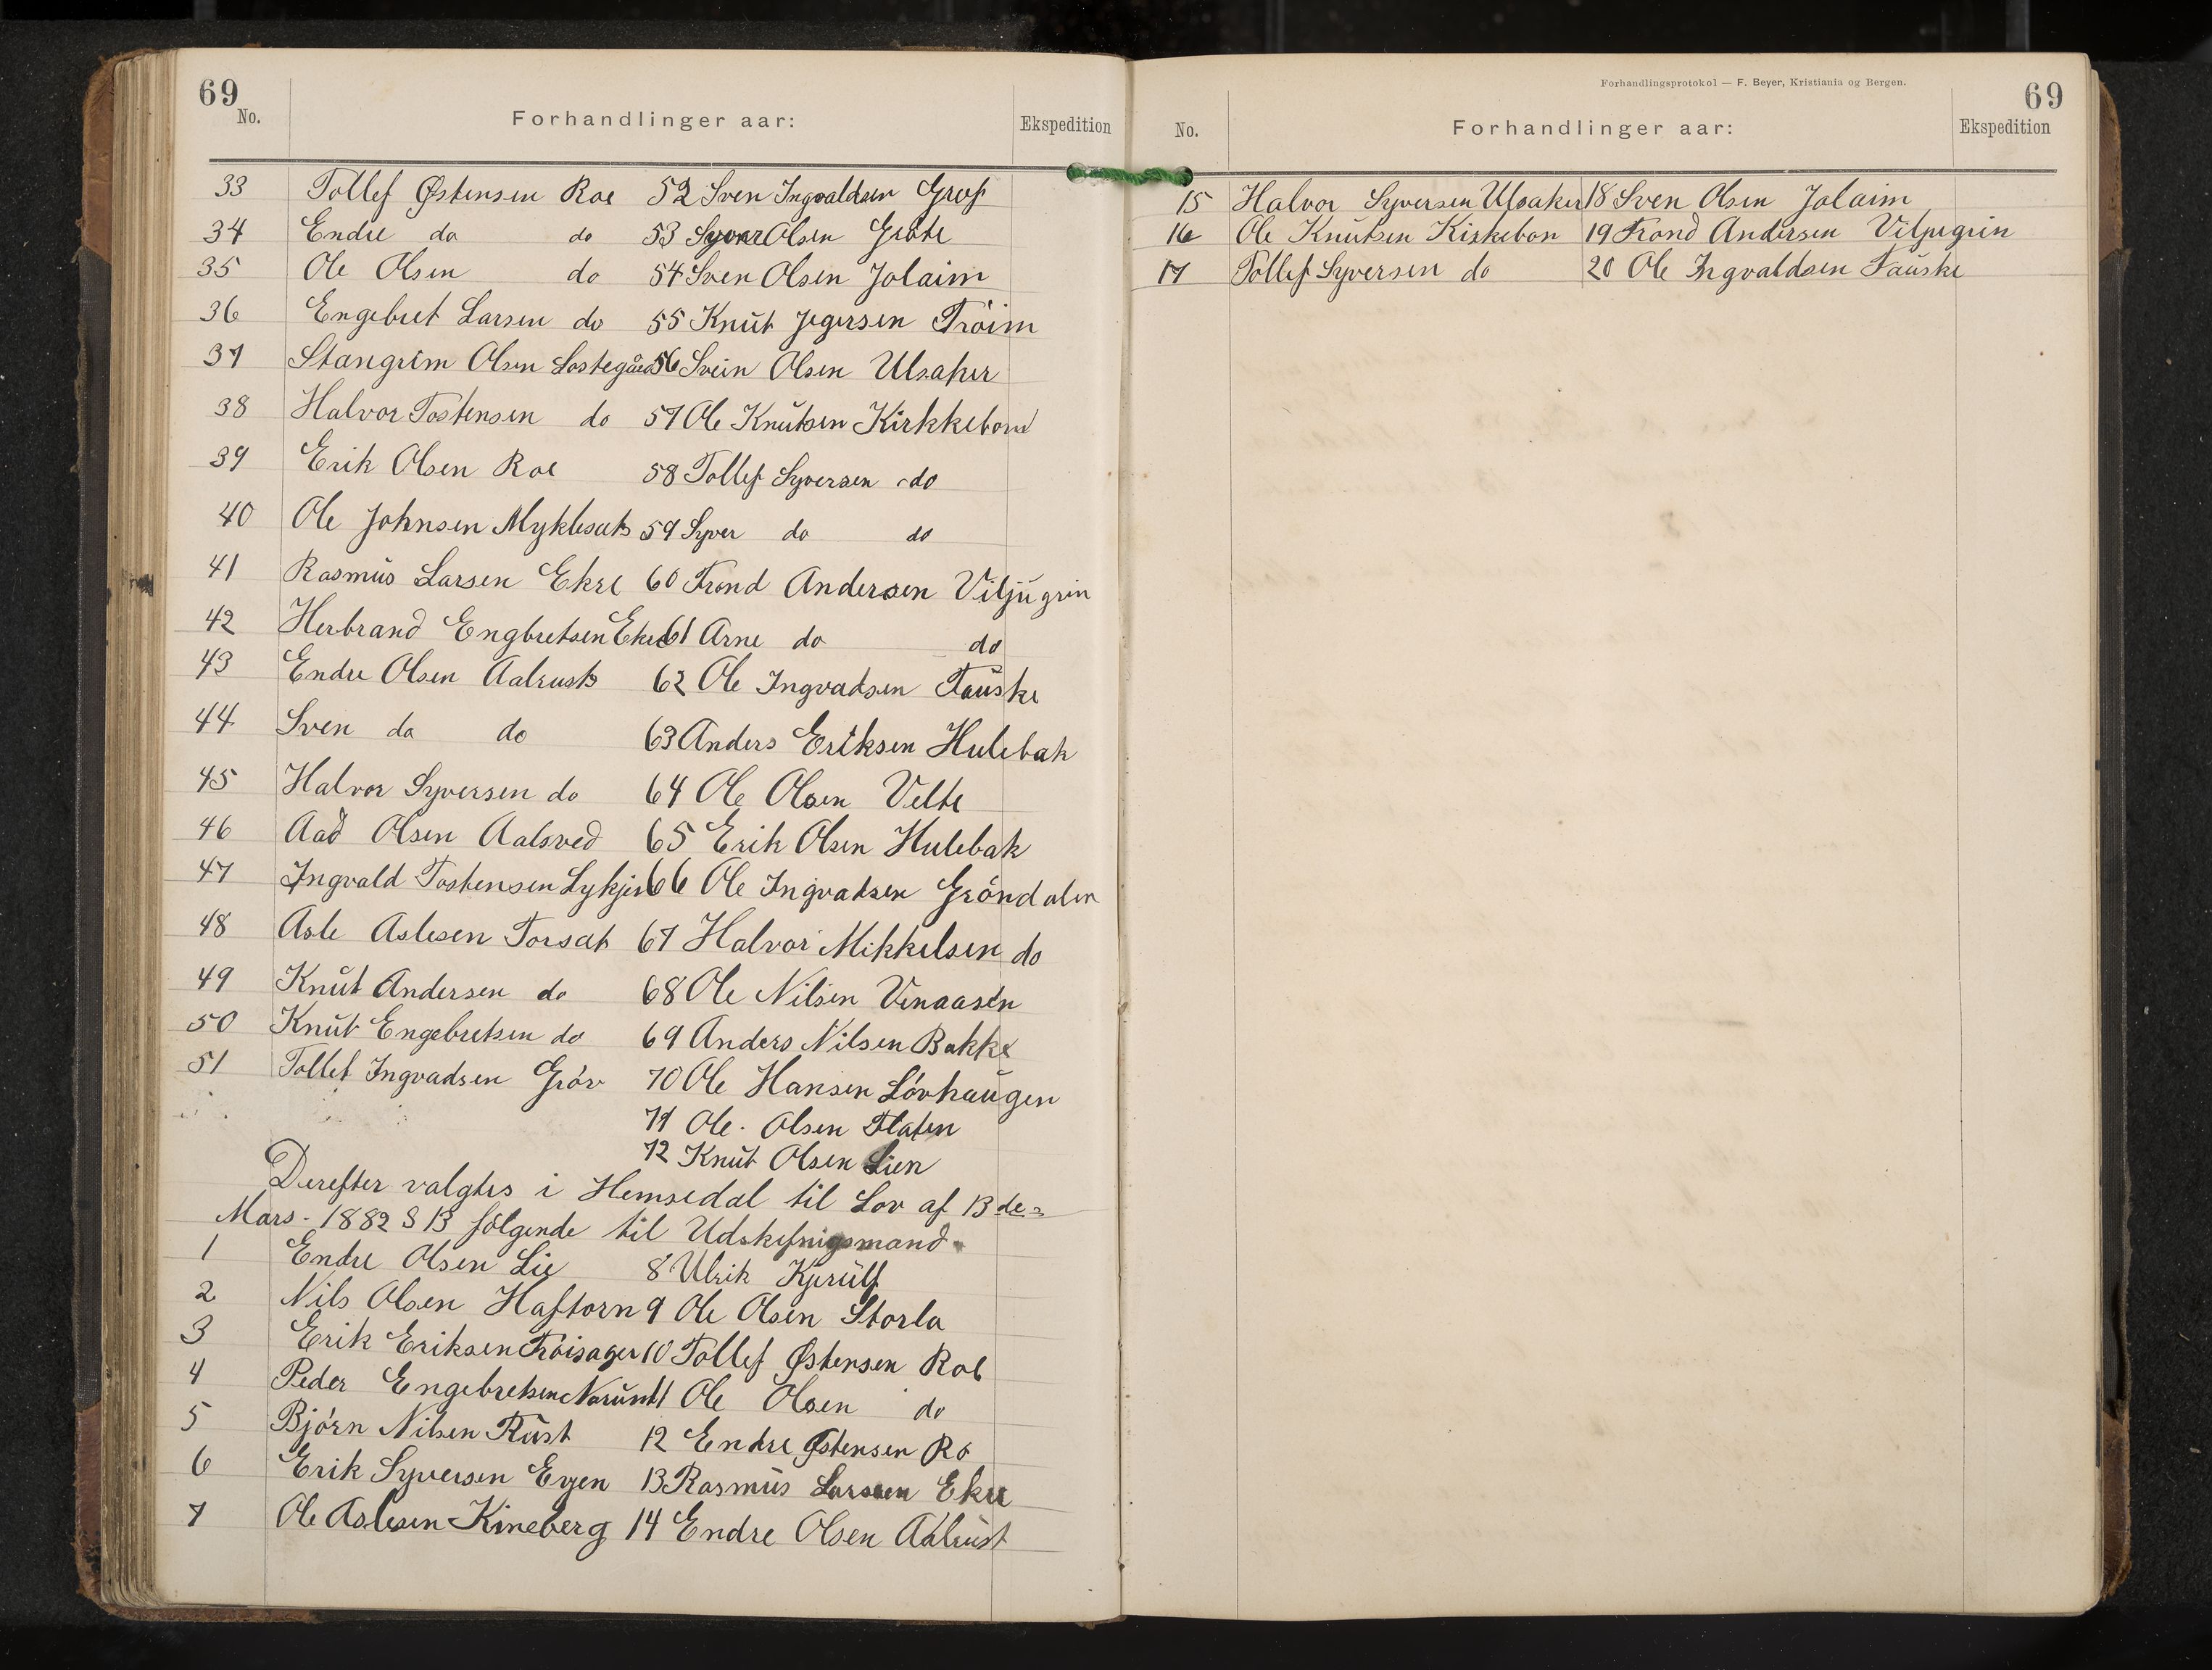 69
No.
Forhandlinger aar:
Ekspedition
33 Tollef Østensen Roe 52 Sven Ingvaldsen Grøf
34 Endre do do 53 Syver Olsen Grøte
35 Ole Olsen do 54 Sven Olsen Jolaim
36 Engebret Larsen do 55 Knut Jegersen Trøim
37 Stangrim Olsen Lostegård 56 Svein Olsen Ulsaker
38 Halvor Tostensen do 57 Ole Knutsen Kirkkebøn
39 Erik Olsen Roe 58 Tollef Syversen do
40 Ole Johnsen Myklesats 59 Syver do do
41 Rasmus Larsen Ekre 60 Trond Andersen Viljugrin
42 Herbrand Engbretsen Ekre 61 Arne do do
43 Endre Olsen Aalrust 62 Ole Ingvadsen Fauske
44 Sven do do 63 Anders Eriksen Hulebak
45 Halvor Syversen do 64 Ole Olsen Velte
46 Aad Olsen Aalsved 65 Erik Olsen Hulebak
47 Ingvald Tostensen Lykjer 66 Ole Ingvadsen Gröndalen
48 Asle Aslesen Torsat 67 Halvor Mikkelsen do
49 Knut Andersen do 68 Ole Nilsen Venaasen
50 Knut Engebretsen do 69 Anders Nilsen Bakke
51 Tollef Ingvadsen Gröv 70 Ole Hansen Lövhaugen
71 Ole Olsen Flaten
72 Knut Olsen Lien
Derefter valgtes i Hemsedal til Lov af 13de
Mars 1882 § 13 følgende til Udskifnigsmand
1 Endre Olsen Lie 8 Ulrik Kjerulf
2 Nils Olsen Haftorn 9 Ole Olsen Storla
3 Erik Eriksen Tröisager 10 Tollef Østensen Roe
4 Peder Engebretsen Norunt 11 Ole Olsen do
5 Björn Nilsen Rust 12 Endre Østensen Ro
6 Erik Syversen Evjen 13 Rasmus Larssen Ekre
7 Ole Aslesen Kineberg 14 Endre Olsen Aalrust
Forhandlingsprotokol — F. Beyer, Kristiania og Bergen.
69
No.
Forhandlinger aar:
Ekspedition
15 Halvor Syversen Ulsaker 18 Sven Olsen Jolaim
16 Ole Knutsen Kirkebøn 19 Trond Andersen Viljugrin
17 Tollef Syversen do 20 Ole Ingvaldsen Fauske